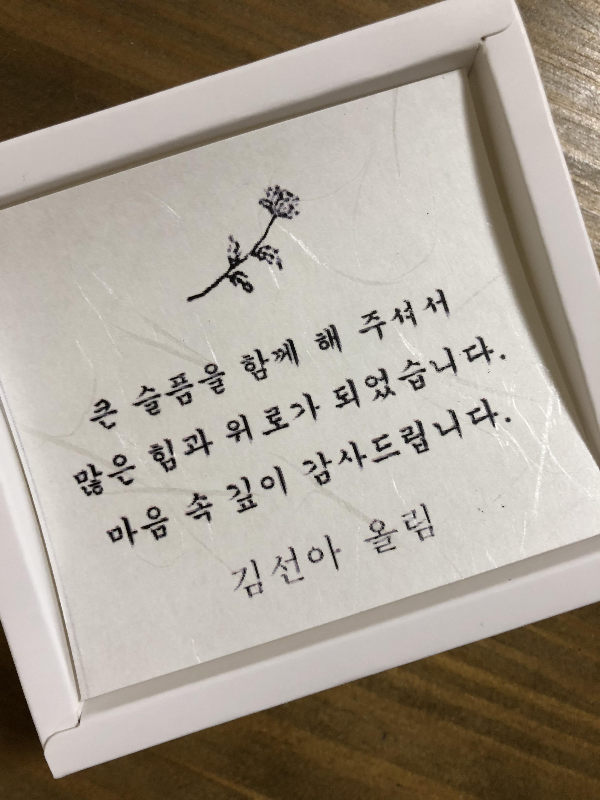 큰 슬픔을 함께 해 주셔서
많은 힘과 위로가 되었습니다.
마음 속 깊이 감사드립니다.
김선아 올림